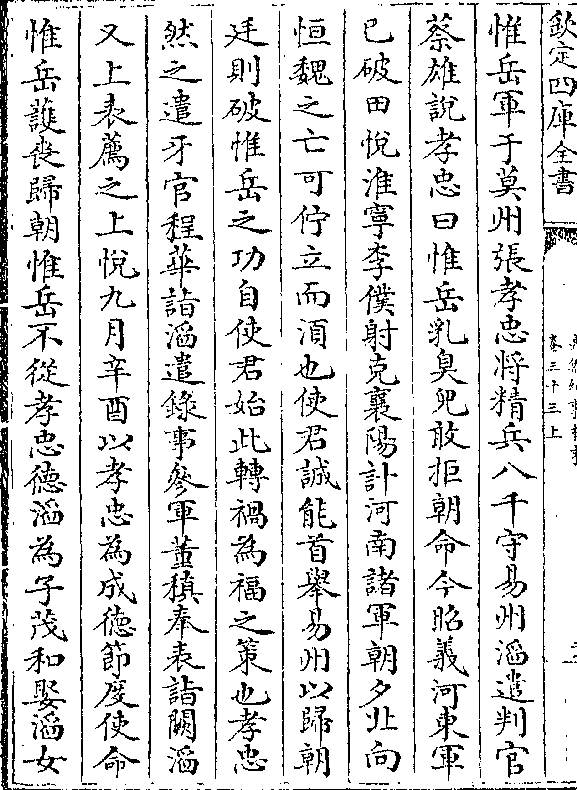 欽定四庫全書
卷三十三上
惟岳軍于莫州張孝忠將精兵八千守易州滔遣判官
蔡雄說孝忠曰惟岳乳臭兒敢拒朝命今昭義河東軍
已破田悅淮寧李僕射克襄陽計河南諸軍朝夕北向
恒魏之亡可佇立而湏也使君誠能首舉易州以歸朝
廷則破惟岳之功自使君始此轉禍為福之策也孝忠
然之遣牙官程華詣滔遣錄事叅軍董稹奉表詣闕滔
又上表薦之上悅九月辛酉以孝忠為成德節度使命
惟岳護喪歸朝惟岳不從孝忠德滔為子茂和娶滔女